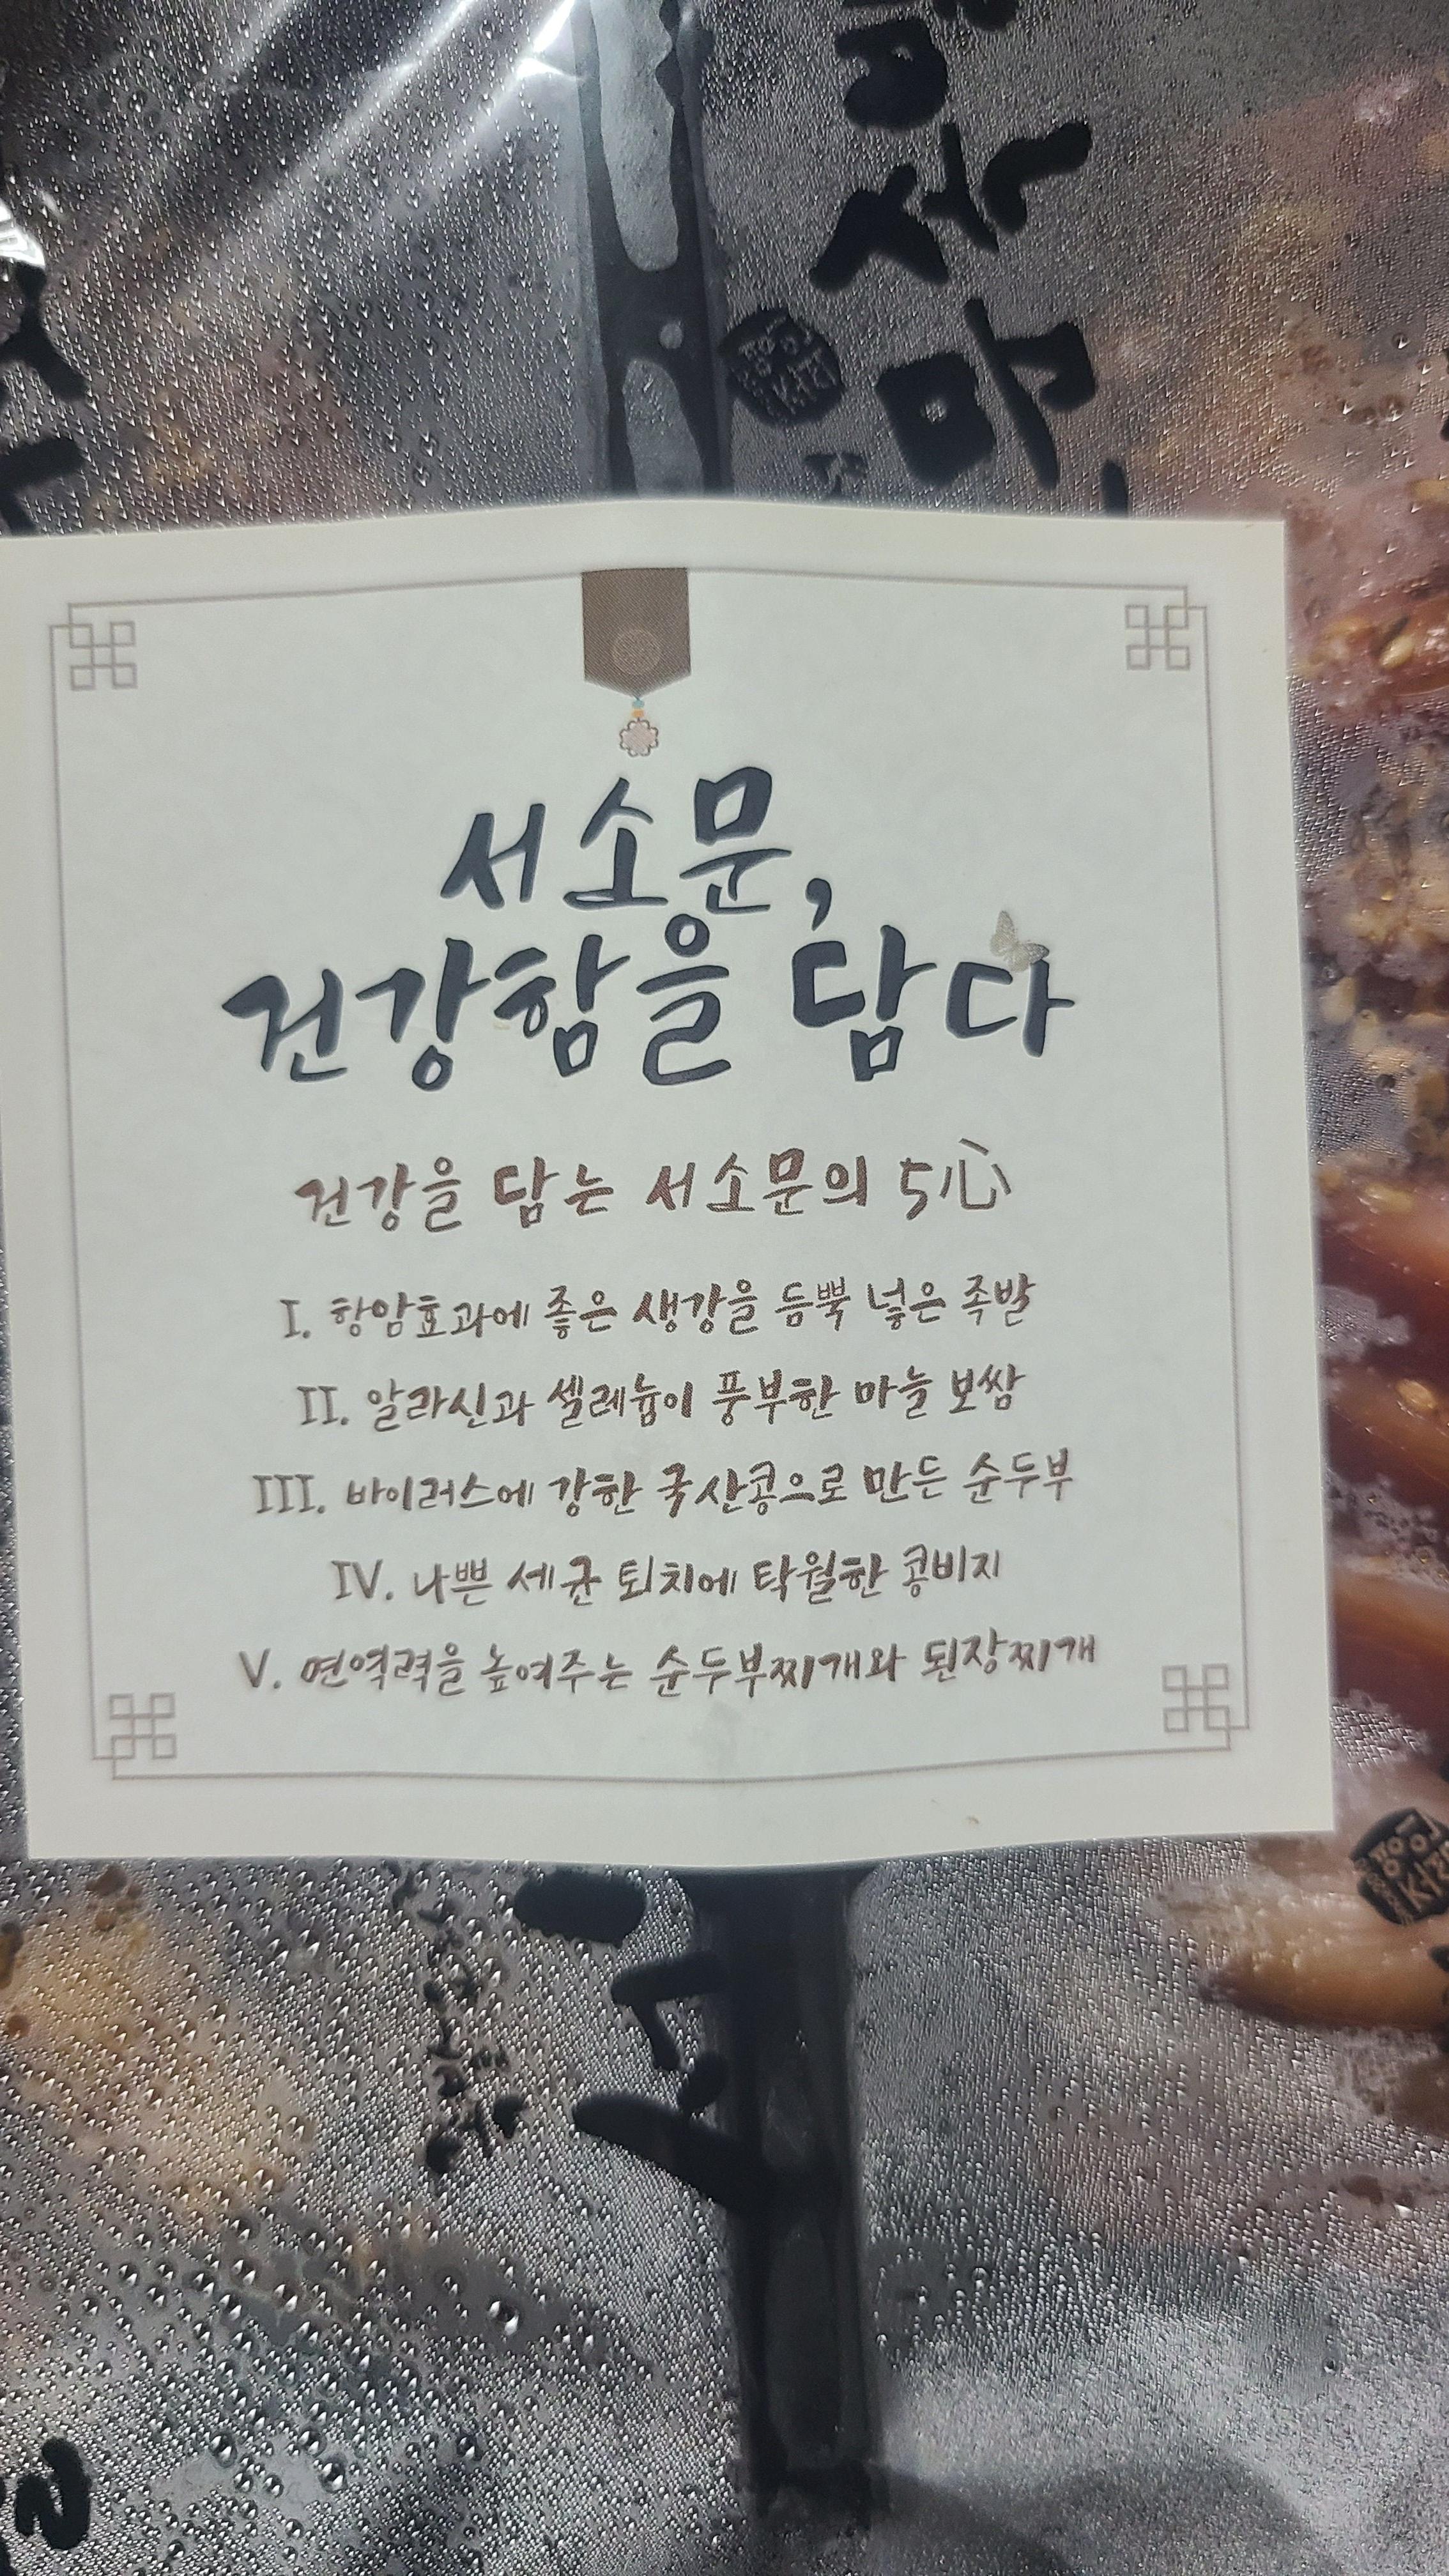 서소문,
건강함을 담다
건강을 담는 서소문의 5心
I. 항암효과에 좋은 생강을 듬뿍 넣은 족발
II. 알라신과 셀레늄이 풍부한 마늘 보쌈
III. 바이러스에 강한 국산콩으로 만든 순두부
IV. 나쁜 세균 퇴치에 탁월한 콩비지
V. 면역력을 높여주는 순두부찌개와 된장찌개